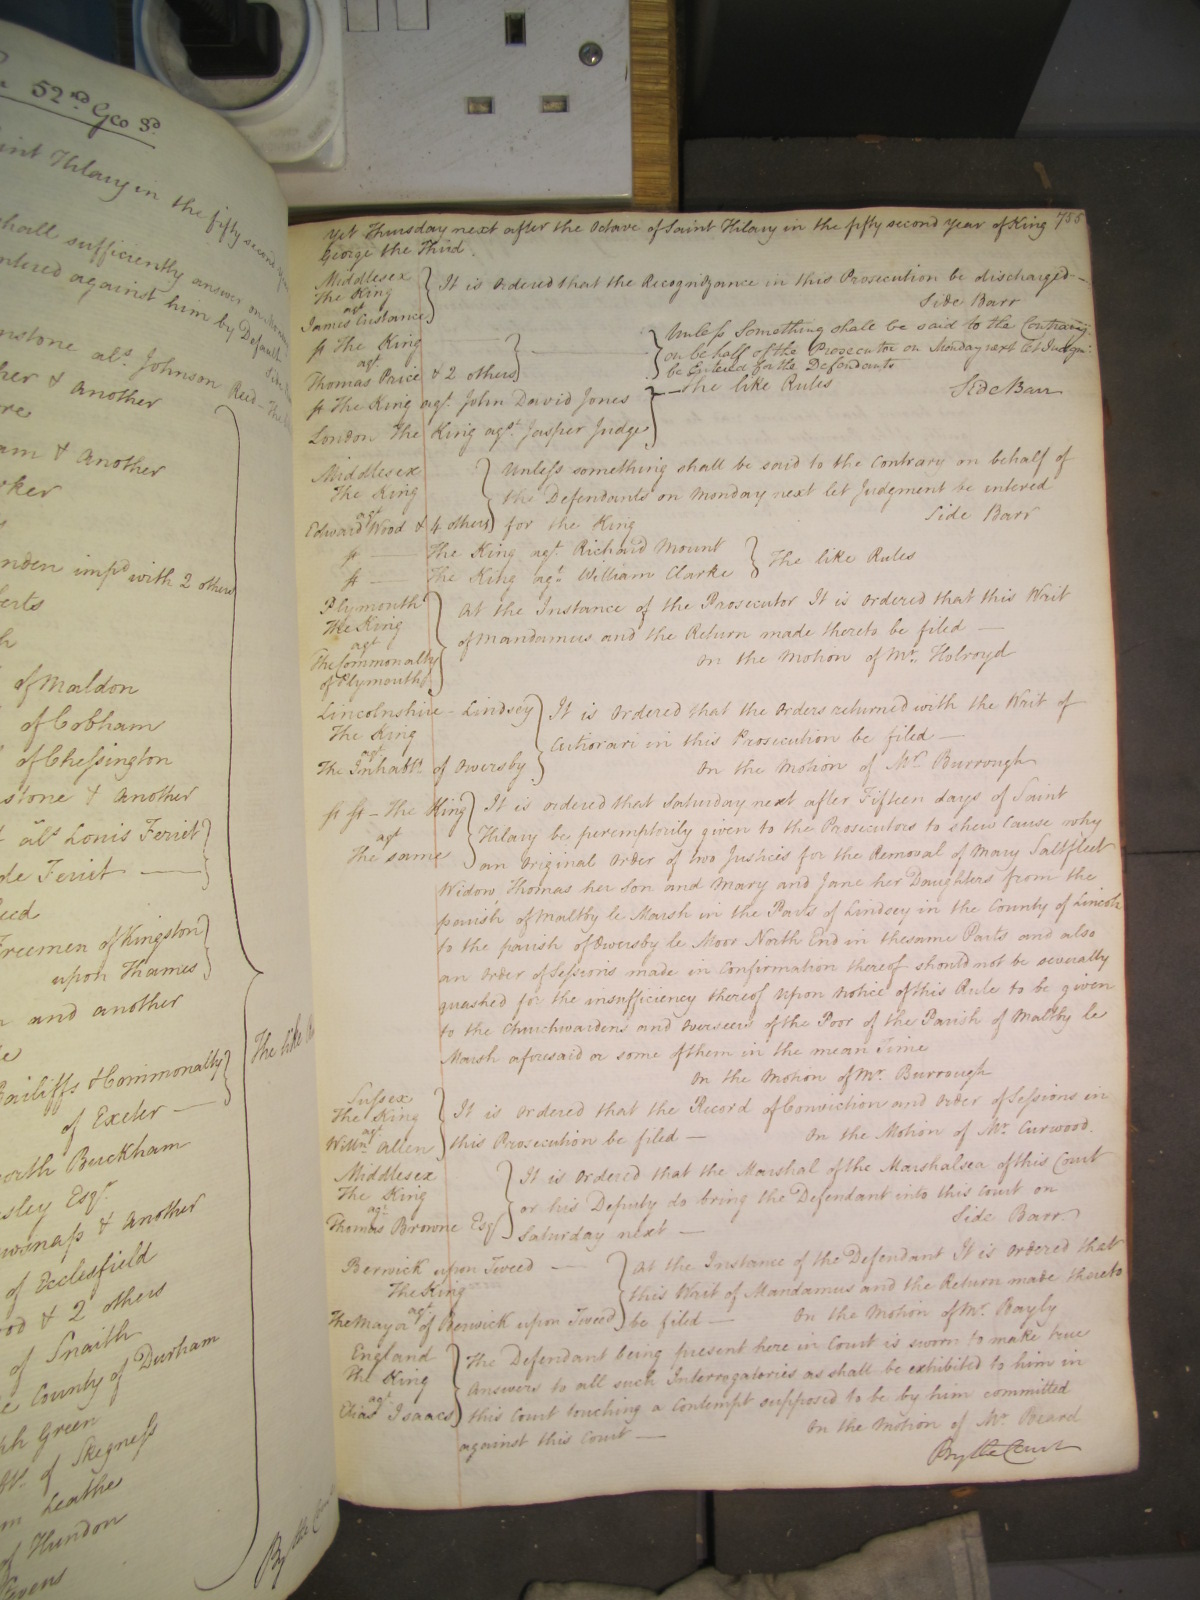 52nd Geo 3d
int Hilary in the fifty second
hall sufficiently answer on
ntered against him by Default
nstone als. Johnson Reed
her & another
re
am & another
rker
nden impd with 2 others
berts
h
of Maldon
of Cobham
of Chessington
stone & another
als Louis Feriet
de Feriet
eed
Freemen of Kingston
upon Thames
n and another
Bailiffs & Commonalty
of Exeter
The like
orth Buckham
sley Esqr.
wsnass & another
of Ecclesfield
ood & 2 others
of Snaith
e County of Durham
ph Green
of Skegness
m Leathes
of Hundon
By the Court
Yet Thursday next after the Octave of Saint Hilary in the fifty second Year of King 755
George the Third.
Middlesex
The King
agt
James Custance
It is ordered that the Recognizance in this Prosecution be discharged
Side Barr
ss The King
agt
Thomas Price & 2 others
Unless Something shall be said to the Contrary
on behalf of the Prosecutor on Monday next let Judgmt.
be Entered for the Defendants
Side Barr
ss The King agt. John David Jones
London The King agt. Jasper Judge
The like Rules
Middlesex
The King
agt
Edward Wood & 4 others
Unless something shall be said to the Contrary on behalf of
the Defendants on Monday next let Judgment be entered
for the King
Side Barr
ss — The King agt. Richard Mount
ss — The King agt. William Clarke
The like Rules
Plymouth
The King
agt
The Commonalty
of Plymouth
At the Instance of the Prosecutor It is ordered that this Writ
of Mandamus and the Return made thereto be filed —
On the Motion of Mr. Holroyd
Lincolnshire - Lindsey
The King
agt
The Inhabts. of Owersby
It is Ordered that the Orders returned with the Writ of
Certiorari in this Prosecution be filed —
On the Motion of Mr. Burrough
ss ss - The King
agt
The same
It is ordered that Saturday next after Fifteen days of Saint
Hilary be peremptorily given to the Prosecutors to shew Cause why
an Original Order of two Justices for the Removal of Mary Saltfleet
Widow, Thomas her Son and Mary and Jane her Daughters from the
parish of Maltby le Marsh in the Parts of Lindsey in the County of Lincoln
to the parish of Owersby le Moor North End in the same Parts and also
an Order of Sessions made in Confirmation thereof should not be severally
quashed for the insufficiency thereof Upon Notice of this Rule to be given
to the Churchwardens and Overseers of the Poor of the Parish of Maltby le
Marsh aforesaid or some of them in the mean Time
On the Motion of Mr. Burrough
Sussex
The King
agt
Willm. Allen
It is ordered that the Record of Conviction and Order of Sessions in
this Prosecution be filed — On the Motion of Mr. Curwood.
Middlesex
The King
agt
Thomas Browne Esqr
It is ordered that the Marshal of the Marshalsea of this Court
or his Deputy do bring the Defendant into this Court on
Saturday next —
Side Barr
Berwick upon Tweed —
The King
agt
The Mayor of Berwick upon Tweed
At the Instance of the Defendant It is ordered that
this Writ of Mandamus and the Return made thereto
be filed — On the Motion of Mr. Bayly
England
The King
agt
Elias Isaacs
The Defendant being present here in Court is sworn to make true
Answers to all such Interrogatories as shall be exhibited to him in
this Court touching a Contempt supposed to be by him committed
against this Court —
On the Motion of Mr. Beard
By the Court